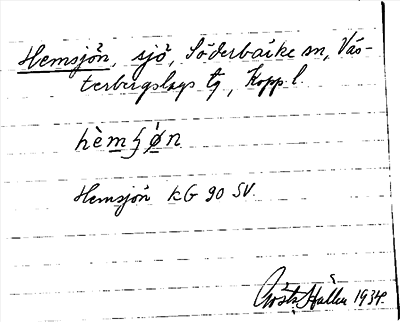 Hemsjön, sjö, Söderbärke sn, Väs-
terbergslags tg, Kopp. l.
hèmʃø̀n
Hemsjön KG 90 SV.
Gösta Hallin 1934.